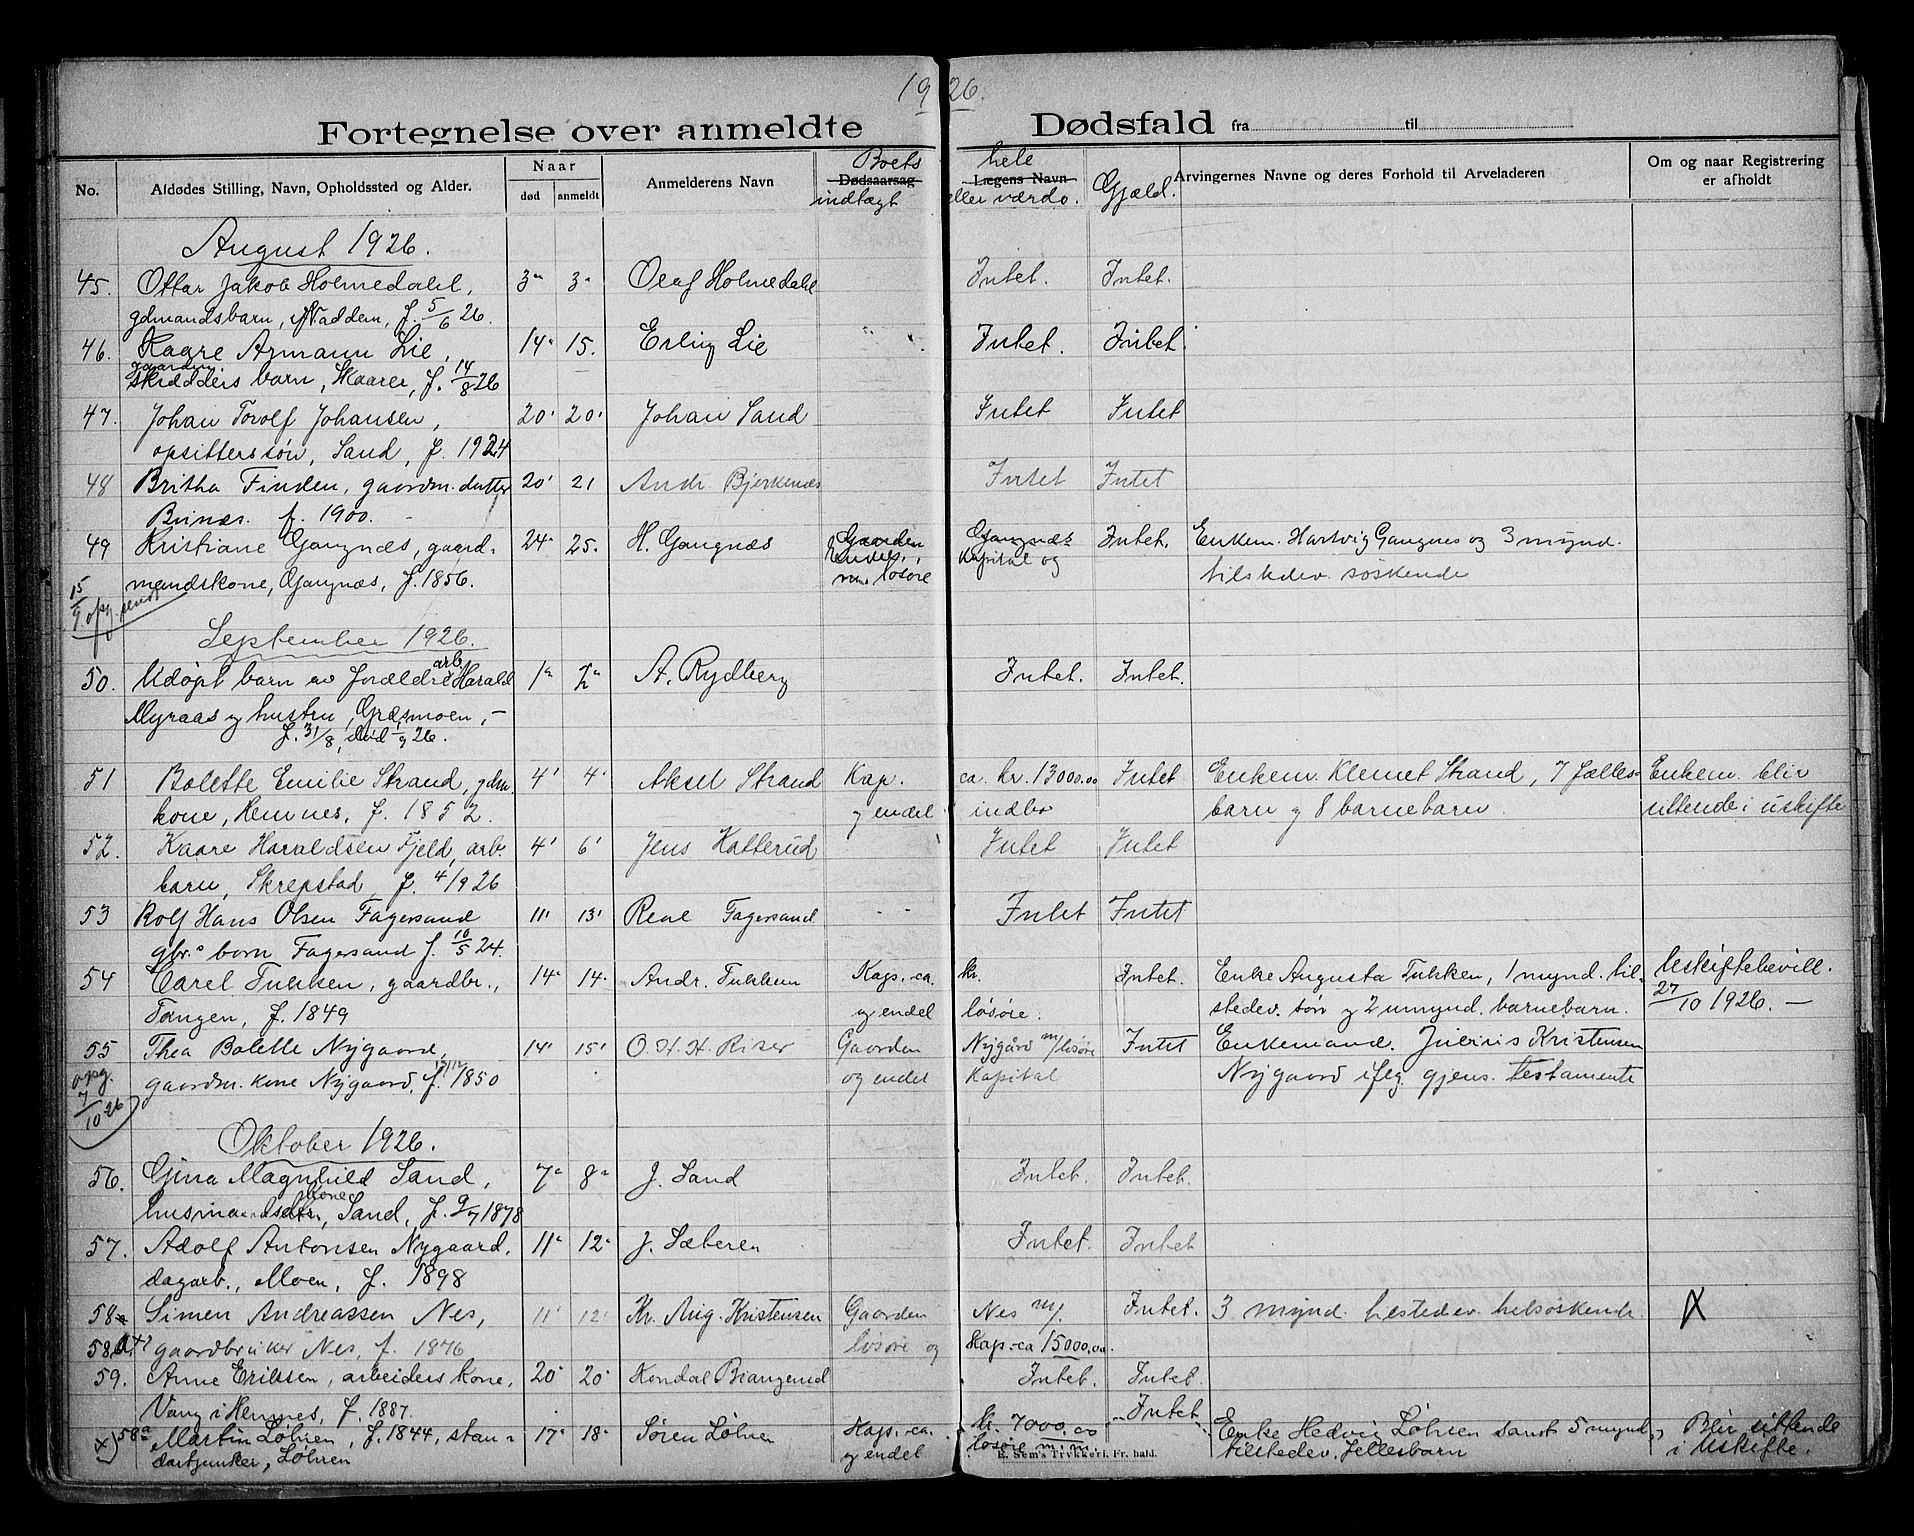 1926.
Fortegnelse over anmeldte Dødsfald fra til
No. Afdødes Stilling, Navn, Opholdssted og Alder. Naar død anmeldt Anmelderens Navn Dødsaarsag Boets indtægt Lægens Navn hele eller værdo. Gjæld. Arvingernes Navne og deres Forhold til Arveladeren Om og naar Registrering er afholdt
August 1926.
45. Ottar Jakob Holmedahl, 3" 3" Olaf Holmedahl Intet. Intet.
gdmandsbarn, Nadden, f. 5/6 26.
46. Kaare Armann Lie, 14" 15. Erling Lie Intet. Intet.
skrædders barn, Skaarer, f. 14/8 26
47. Johan Torolf Johansen, 20' 20' Johan Sand Intet Intet
opsitterssøn, Sand, f. 1924
48 Britha Finden, gaardm. datter 20' 21 Andr Bjerkenæs Intet Intet
f. 1900.
49 Kristiane Gangnæs, gaard- 24" 25. H. Gangnæs Gaarden Gangnæs Intet. Enkem. Hartvig Gangnes og 3 mynd.
mandskone, Gangnæs, f. 1856. m. løsøre Kapital og tilstedev. søskende
15/9 opg. sendt
September 1926.
50. Udøpt barn av forældre arb. Harald 1" 2" A. Rydberg Intet. Intet.
Myraas og hustru, Græsmoen, -
f. 31/8, død 1/9 26.
51 Bolette Emilie Strand, gdm. 4' 4' Aksel Strand Kap. ca. kr. 13000.00 Intet Enkem. Klemet Strand, 7 fælles- Enkem. blir
kone, Hemnes, f. 1852. og endel indbo barn og 8 barnebarn. sittende i uskifte
52. Kaare Haraldsen Fjeld, arb. 4' 6' Jens Katterud Intet Intet
barn, Skrepstad, f. 4/9 26
53 Rolf Hans Olsen Fagersand 11' 13' Rene Fagersand Intet Intet
gbr.s barn Fagersand f. 10/5 24.
54 Carel Tukken, gaardbr., 14" 14" Andr. Tukken Kap. ca. kr. Intet. Enke Augusta Tukken, 1 mynd. til- Uskiftebevill.
Tangen, f. 1849 og endel løsøre. stedev. søn og 2 umynd. barnebarn. 27/10 1926. —
55 Thea Bolette Nygaard, 14' 15' O. H. H. Riser Gaarden Nygård m/løsøre Intet Enkemand. Julius Kristensen
gaardm. kone Nygaard, f. 1850 og endel Kapital Nygaard iflg. gjens. testamente
opg. 7/10 26
Oktober 1926.
56. Gina Magnhild Sand, 7" 8" J. Sand Intet. Intet.
husmandskone, Sand, f. 9/7 1878
57. Adolf Antonsen Nygaard, 11" 12" J. Sæteren Intet. Intet
dagarb., Moen, f. 1898
58 Simen Andreassen Nes, 11' 12' Kr. Aug. Kristensen Gaarden Nes m/. Intet. 3 mynd. tilstedev. helsøskende. X
58a x) gaardbruker Nes, f. 1876 løsøre og Kap. ca 15000.00.
59. Anne Eriksen, arbeiders kone, 20" 20" Kondal Bjangerud Intet. Intet.
Vang i Hemnes, f. 1887.
x) 58a Martin Løhren, f. 1844, stan- 17" 18" Søren Løhren Kap. ca. kr. 7000.00 Intet Enke Hedvig Løhren samt 5 mynd. Blir sittende
dartjunker, Løhren og endel løsøre m.m. tilstedev. fellesbarn i Uskifte.
E. Sem's Trykkeri. Fr. hald.